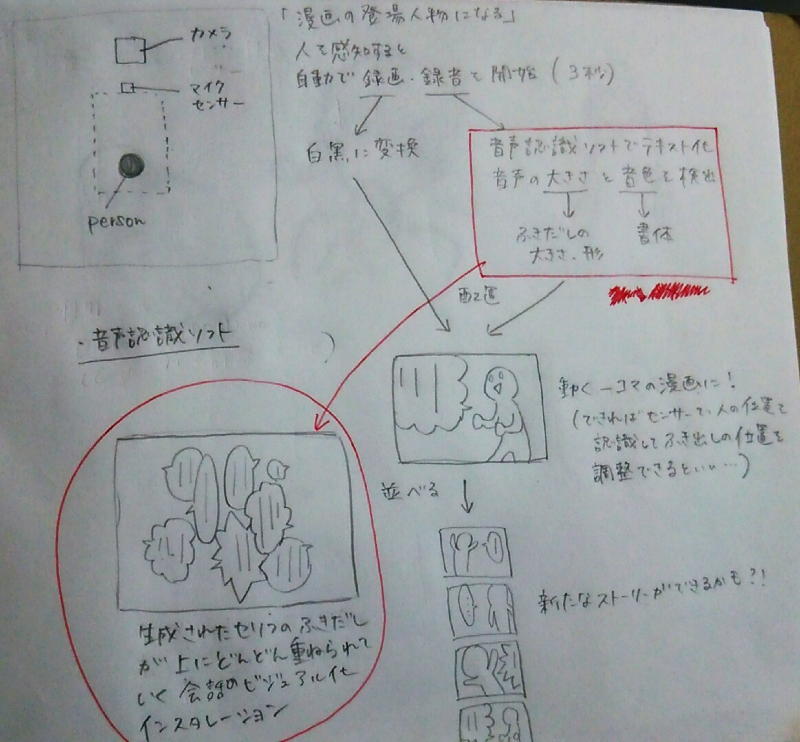 カメラ
マイク
センサー
person
「漫画の登場人物になる」
人を感知すると
自動で録画・録音を開始(3秒)
白黒に変換
音声認識ソフトでテキスト化
音声の大きさと音色を検出
ふきだしの
大きさ、形
書体
配置
・音声認識ソフト
動く一コマの漫画に!
(できればセンサーで、人の位置を
認識してふき出しの位置を
調整できるといい…)
並べる
新たなストーリーができるかも?!
生成されたセリフのふきだし
が上にどんどん重ねられて
いく会話のビジュアル化
インスタレーション